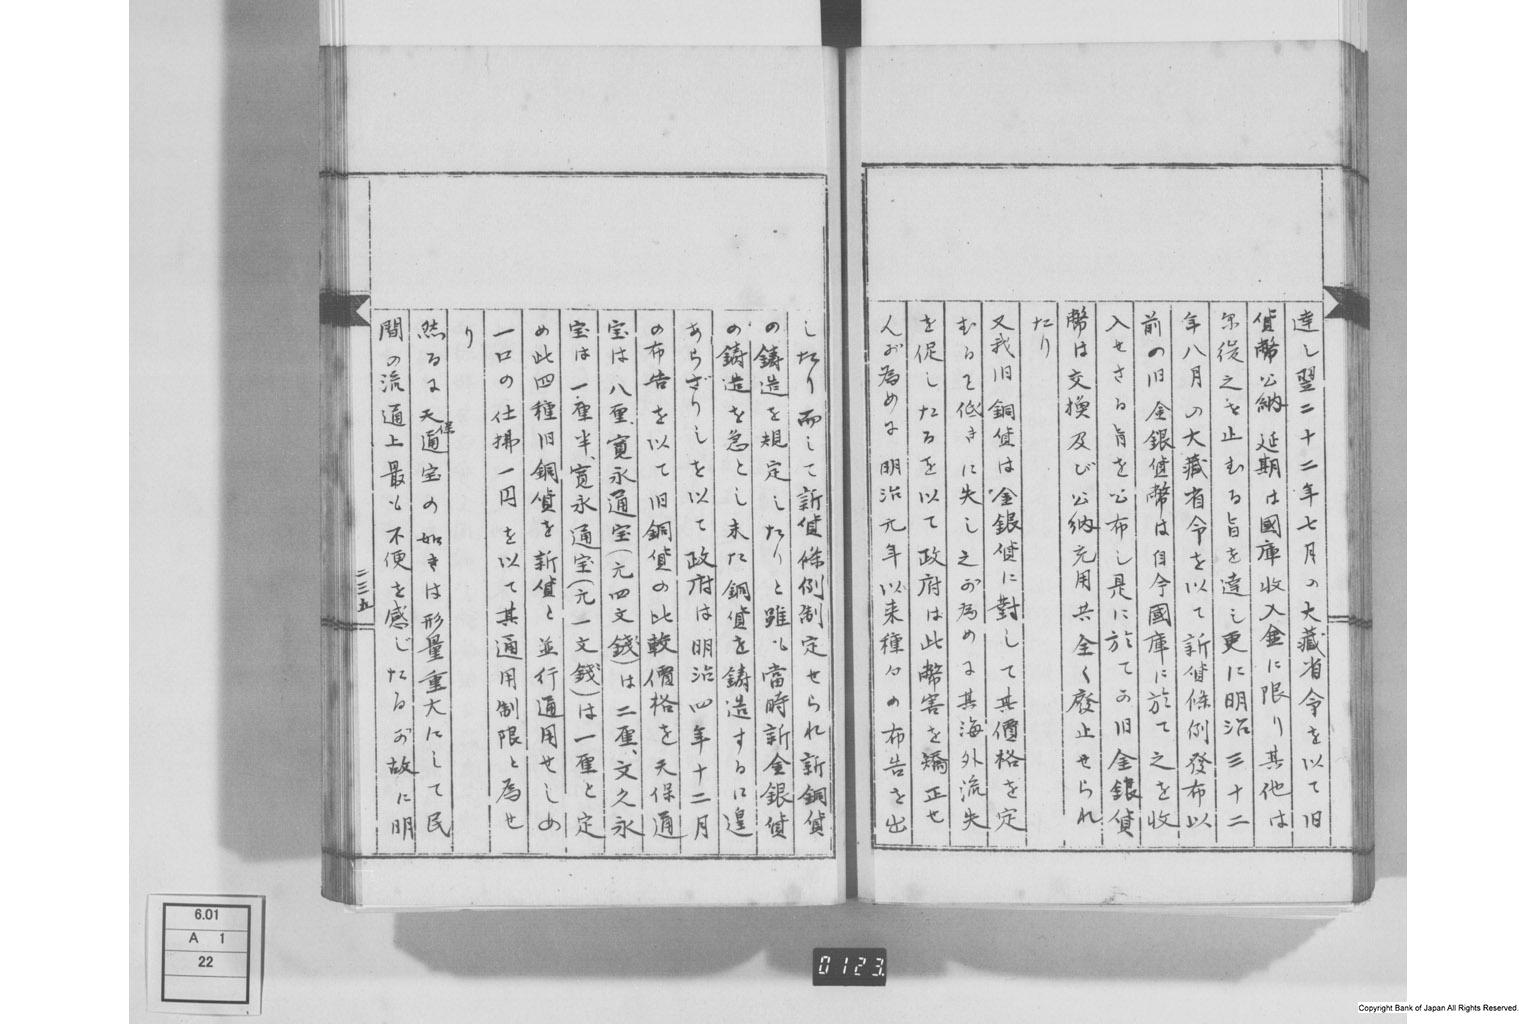 達し翌二十二年七月の大藏省令を以て旧
貨幣公納延期は國庫収入金に限り其他は
尓後之を止むる旨を達し更に明治三十二
年八月の大藏省令を以て新貨條例發布以
前の旧金銀貨幣は自今國庫に於て之を收
入せさる旨を公布し是に於てか旧金銀貨
幣は交換及び公納充用共全く廢止せられ
たり
又我旧銅貨は金銀貨に對して其價格を定
むること低きに失し之が為めに其海外流失
を促したるを以て政府は此幣害を矯正せ
んが為めに明治元年以来種々の布告を出
したり而して新貨條例制定せられ新銅貨
の鋳造を規定したりと雖も當時新金銀貨
の鋳造を急とし未た銅貨を鋳造するに遑
あらざりしを以て政府は明治四年十二月
の布告を以て旧銅貨の比較價格を天保通
宝は八厘、寛永通宝(元四文錢)は二厘、文久永
宝は一厘半、寛永通宝(元一文錢)は一厘と定
め此四種旧銅貨を新貨と並行通用せしめ
一口の仕拂一円を以て其通用制限と為せ
り
然るに天保通宝の如きは形量重大にして民
間の流通上最も不便を感じたるが故に明
二三五
6.01
A 1
22
0123
Copyright Bank of Japan All Rights Reserved.